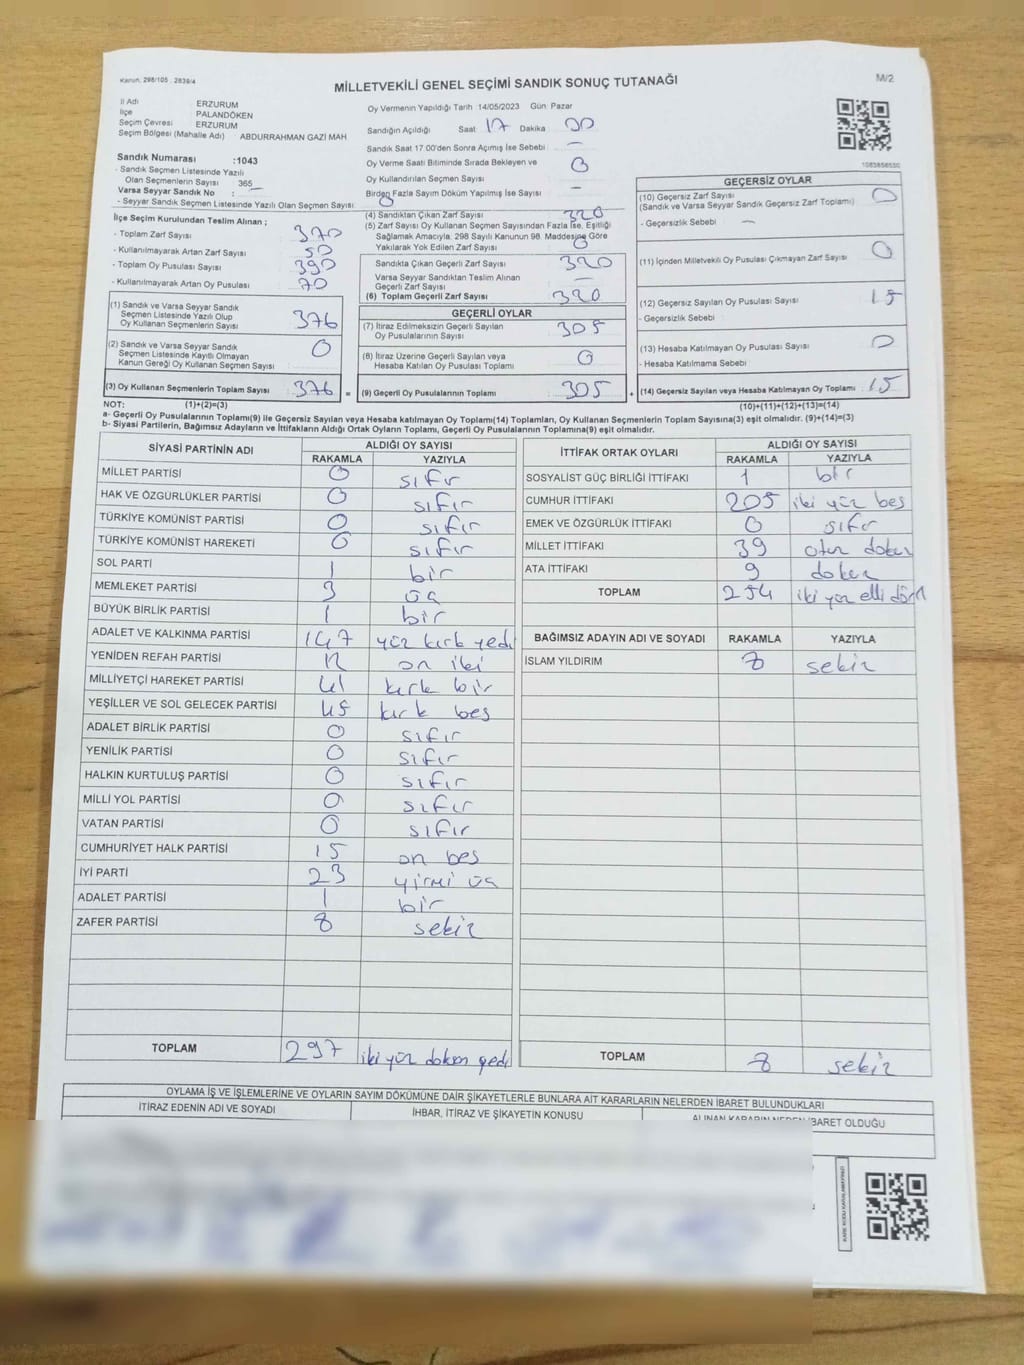 Kanun: 298/105 : 2839/4
MİLLETVEKİLİ GENEL SEÇİMİ SANDIK SONUÇ TUTANAĞI
M/2
İl Adı ERZURUM
İlçe PALANDÖKEN
Seçim Çevresi ERZURUM
Seçim Bölgesi (Mahalle Adı) ABDURRAHMAN GAZİ MAH
Sandık Numarası :1043
- Sandık Seçmen Listesinde Yazılı
Olan Seçmenlerin Sayısı 365
Varsa Seyyar Sandık No : –
- Seyyar Sandık Seçmen Listesinde Yazılı Olan Seçmen Sayısı 0
Oy Vermenin Yapıldığı Tarih 14/05/2023 Gün: Pazar
Sandığın Açıldığı Saat 17 Dakika 00
Sandık Saat 17.00'den Sonra Açımış İse Sebebi –
Oy Verme Saati Bitiminde Sırada Bekleyen ve
Oy Kullandırılan Seçmen Sayısı 0
Birden Fazla Sayım Döküm Yapılmış İse Sayısı –
1083658530
İlçe Seçim Kurulundan Teslim Alınan ;
- Toplam Zarf Sayısı 370
- Kullanılmayarak Artan Zarf Sayısı 50
- Toplam Oy Pusulası Sayısı 390
- Kullanılmayarak Artan Oy Pusulası 70
(1) Sandık ve Varsa Seyyar Sandık
Seçmen Listesinde Yazılı Olup
Oy Kullanan Seçmenlerin Sayısı 376
(2) Sandık ve Varsa Seyyar Sandık
Seçmen Listesinde Kayıtlı Olmayan
Kanun Gereği Oy Kullanan Seçmen Sayısı 0
(3) Oy Kullanan Seçmenlerin Toplam Sayısı 376
(4) Sandıktan Çıkan Zarf Sayısı 320
(5) Zarf Sayısı Oy Kullanan Seçmen Sayısından Fazla İse, Eşitliği
Sağlamak Amacıyla, 298 Sayılı Kanunun 98. Maddesine Göre
Yakılarak Yok Edilen Zarf Sayısı 0
Sandıkta Çıkan Geçerli Zarf Sayısı 320
Varsa Seyyar Sandıktan Teslim Alınan
Geçerli Zarf Sayısı –
(6) Toplam Geçerli Zarf Sayısı 320
GEÇERLİ OYLAR
(7) İtiraz Edilmeksizin Geçerli Sayılan
Oy Pusulalarının Sayısı 305
(8) İtiraz Üzerine Geçerli Sayılan veya
Hesaba Katılan Oy Pusulası Toplamı 0
= (9) Geçerli Oy Pusulalarının Toplamı 305
GEÇERSİZ OYLAR
(10) Geçersiz Zarf Sayısı 0
(Sandık ve Varsa Seyyar Sandık Geçersiz Zarf Toplamı)
- Geçersizlik Sebebi –
(11) İçinden Milletvekili Oy Pusulası Çıkmayan Zarf Sayısı 0
(12) Geçersiz Sayılan Oy Pusulası Sayısı 15
- Geçersizlik Sebebi
(13) Hesaba Katılmayan Oy Pusulası Sayısı 0
- Hesaba Katılmama Sebebi
+ (14) Geçersiz Sayılan veya Hesaba Katılmayan Oy Toplamı 15
NOT: (1)+(2)=(3) (10)+(11)+(12)+(13)=(14)
a- Geçerli Oy Pusulalarının Toplamı(9) ile Geçersiz Sayılan veya Hesaba katılmayan Oy Toplamı(14) Toplamları, Oy Kullanan Seçmenlerin Toplam Sayısına(3) eşit olmalıdır. (9)+(14)=(3)
b- Siyasi Partilerin, Bağımsız Adayların ve İttifakların Aldığı Ortak Oyların Toplamı, Geçerli Oy Pusulalarının Toplamına(9) eşit olmalıdır.
SİYASİ PARTİNİN ADI ALDIĞI OY SAYISI
RAKAMLA YAZIYLA
MİLLET PARTİSİ 0 sıfır
HAK VE ÖZGÜRLÜKLER PARTİSİ 0 sıfır
TÜRKİYE KOMÜNİST PARTİSİ 0 sıfır
TÜRKİYE KOMÜNİST HAREKETİ 0 sıfır
SOL PARTİ 1 bir
MEMLEKET PARTİSİ 3 üç
BÜYÜK BİRLİK PARTİSİ 1 bir
ADALET VE KALKINMA PARTİSİ 147 yüz kırk yedi
YENİDEN REFAH PARTİSİ 12 on iki
MİLLİYETÇİ HAREKET PARTİSİ 41 kırk bir
YEŞİLLER VE SOL GELECEK PARTİSİ 45 kırk beş
ADALET BİRLİK PARTİSİ 0 sıfır
YENİLİK PARTİSİ 0 sıfır
HALKIN KURTULUŞ PARTİSİ 0 sıfır
MİLLİ YOL PARTİSİ 0 sıfır
VATAN PARTİSİ 0 sıfır
CUMHURİYET HALK PARTİSİ 15 on beş
İYİ PARTİ 23 yirmi üç
ADALET PARTİSİ 1 bir
ZAFER PARTİSİ 8 sekiz
TOPLAM 297 iki yüz doksan yedi
İTTİFAK ORTAK OYLARI ALDIĞI OY SAYISI
RAKAMLA YAZIYLA
SOSYALİST GÜÇ BİRLİĞİ İTTİFAKI 1 bir
CUMHUR İTTİFAKI 205 iki yüz beş
EMEK VE ÖZGÜRLÜK İTTİFAKI 0 sıfır
MİLLET İTTİFAKI 39 otuz dokuz
ATA İTTİFAKI 9 dokuz
TOPLAM 254 iki yüz elli dört
BAĞIMSIZ ADAYIN ADI VE SOYADI RAKAMLA YAZIYLA
İSLAM YILDIRIM 8 sekiz
TOPLAM 8 sekiz
OYLAMA İŞ VE İŞLEMLERİNE VE OYLARIN SAYIM DÖKÜMÜNE DAİR ŞİKAYETLERLE BUNLARA AİT KARARLARIN NELERDEN İBARET BULUNDUKLARI
İTİRAZ EDENİN ADI VE SOYADI İHBAR, İTİRAZ VE ŞİKAYETİN KONUSU ALINAN KARARIN NEDEN İBARET OLDUĞU
KARE KODU KARALAMAYINIZ!